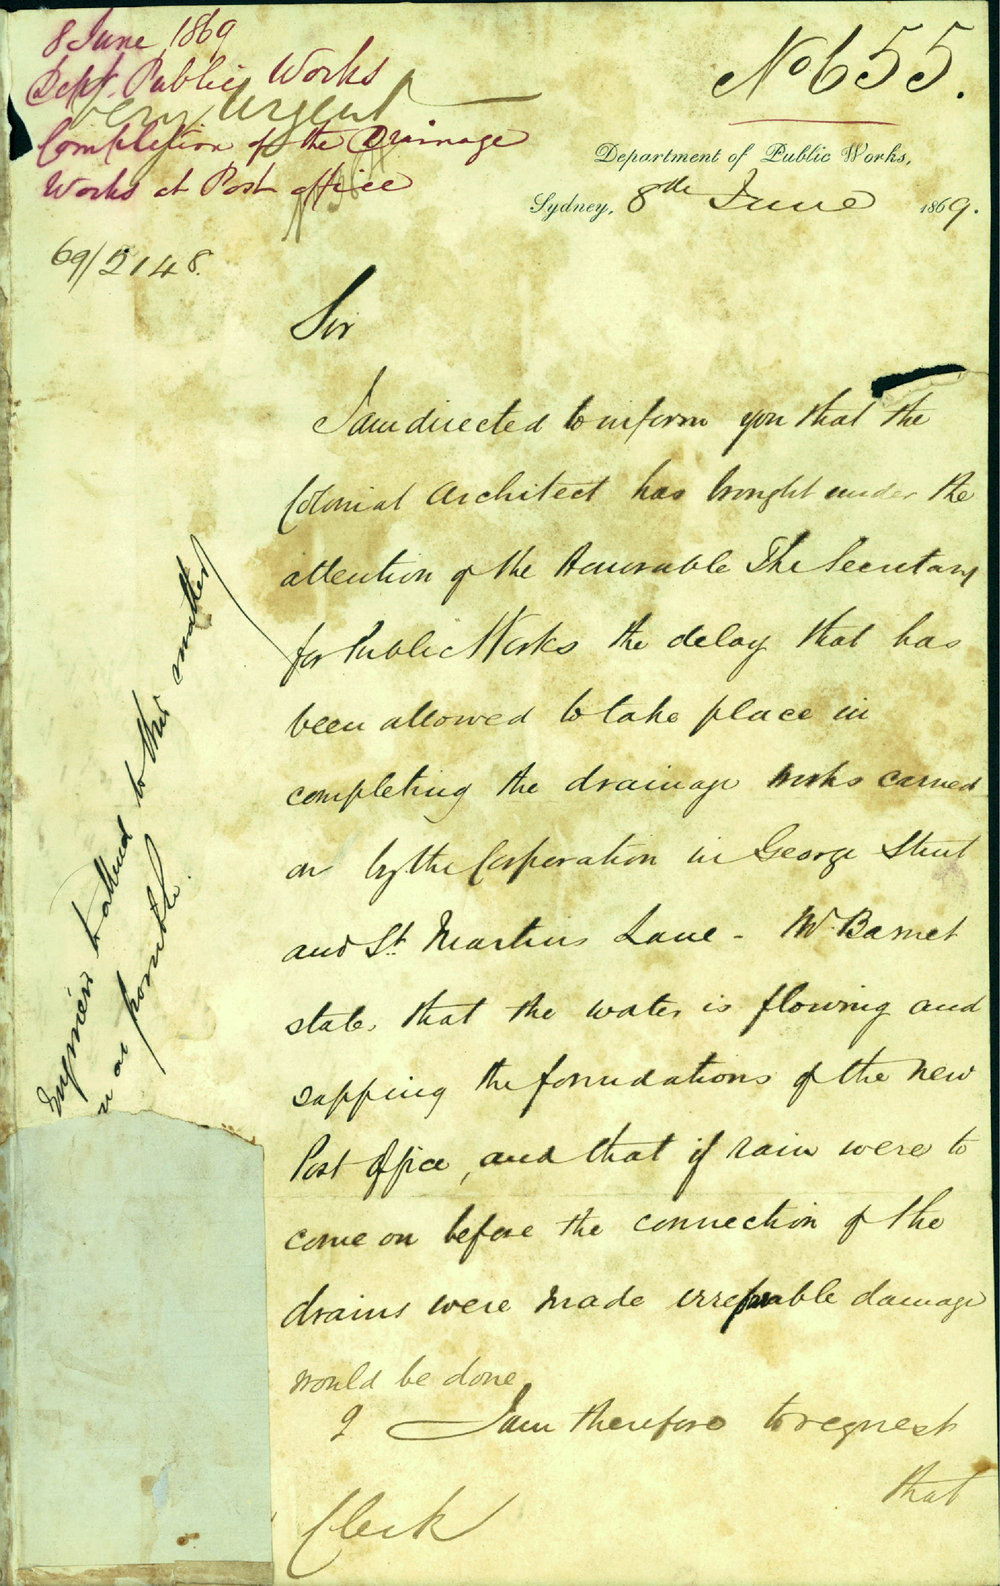 8 June 1869
Dept. Public Works
Very Urgent
Completion of the Drainage
Works at Post office
No 655.
Department of Public Works,
Sydney, 8th June 1869.
69/2148.
Sir
I am directed to inform you that the
Colonial Architect has brought under the
attention of the Honorable The Secretary
for Public Works the delay that has
been allowed to take place in
completing the drainage works carried
on by the Corporation in George Street
and St. Martins Lane - Mr. Barnet
states that the water is flowing and
sapping the foundations of the new
Post Office, and that if rain were to
come on before the connection of the
drains were made irreparable damage
would be done
I am therefore to request
that
Clerk
to attend to this matter
as possible.